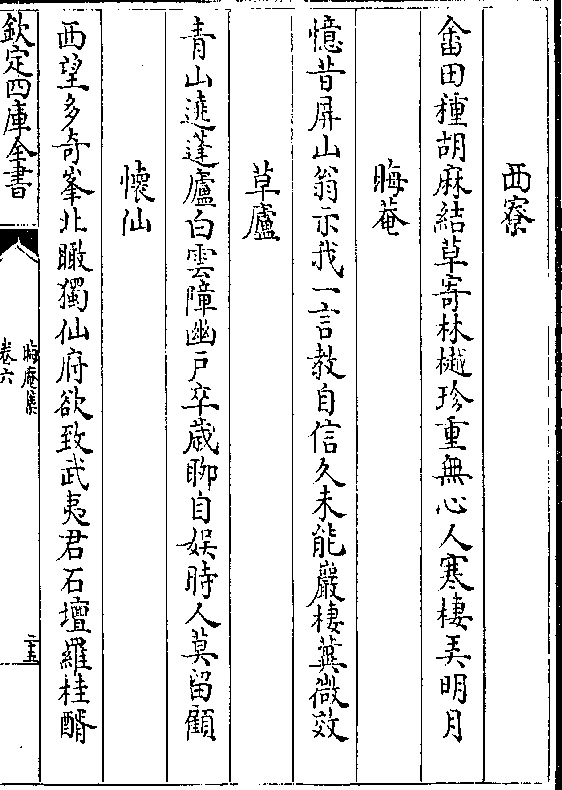 西寮
畬田種胡麻結草寄林樾珍重無心人寒棲弄明月
晦菴
憶昔屏山翁示我一言教自信久未能巖棲冀微效
草廬
青山遶蓬廬白雲障幽戸卒歳聊自娯時人莫留顧
懷仙
西望多奇峯北瞰獨仙府欲致武夷君石壇羅桂醑
欽定四庫全書
晦庵集
卷六
二五